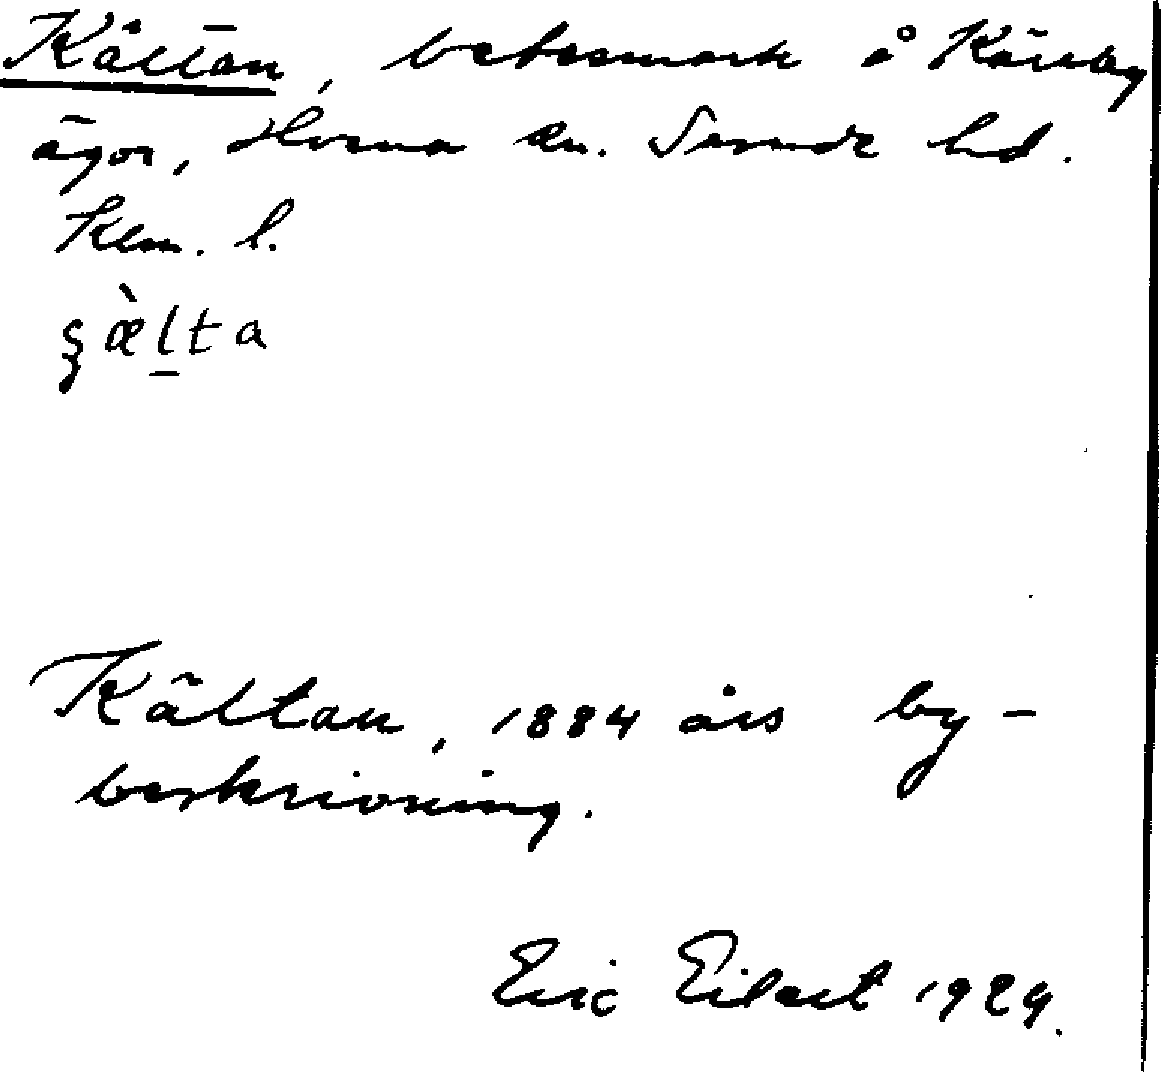 Kältan, betesmark å Kärrby
ägor, Horna sn. Serude hd.
Krm. l.
ȿæ̀lta
Kältan, 1884 års by-
beskrivning.
Eric Eilert 1929.